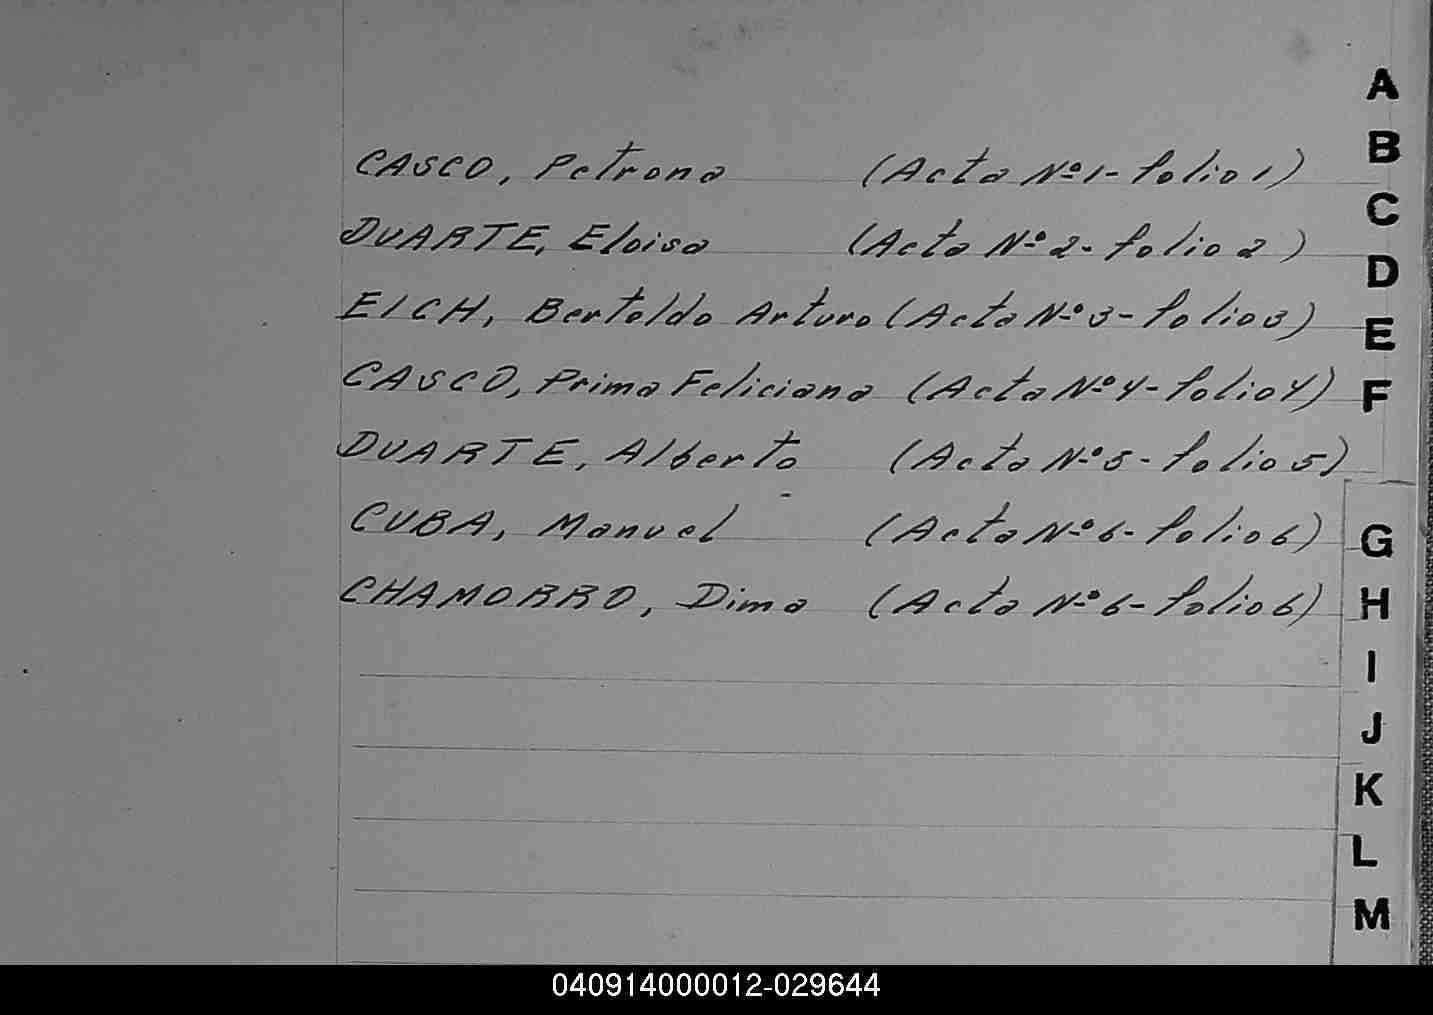 CASCO, Petrona (Acta Nº1-folio1)
DUARTE, Eloisa (Acta Nº2-folio2)
EICH, Bertoldo Arturo (Acta Nº3-folio3)
CASCO, Prima Feliciana (Acta Nº4-folio4)
DUARTE, Alberto (Acta Nº5-folio5)
CUBA, Manuel (Acta Nº6-folio6)
CHAMORRO, Dima (Acta Nº6-folio6)
A
B
C
D
E
F
G
H
I
J
K
L
M
040914000012-029644